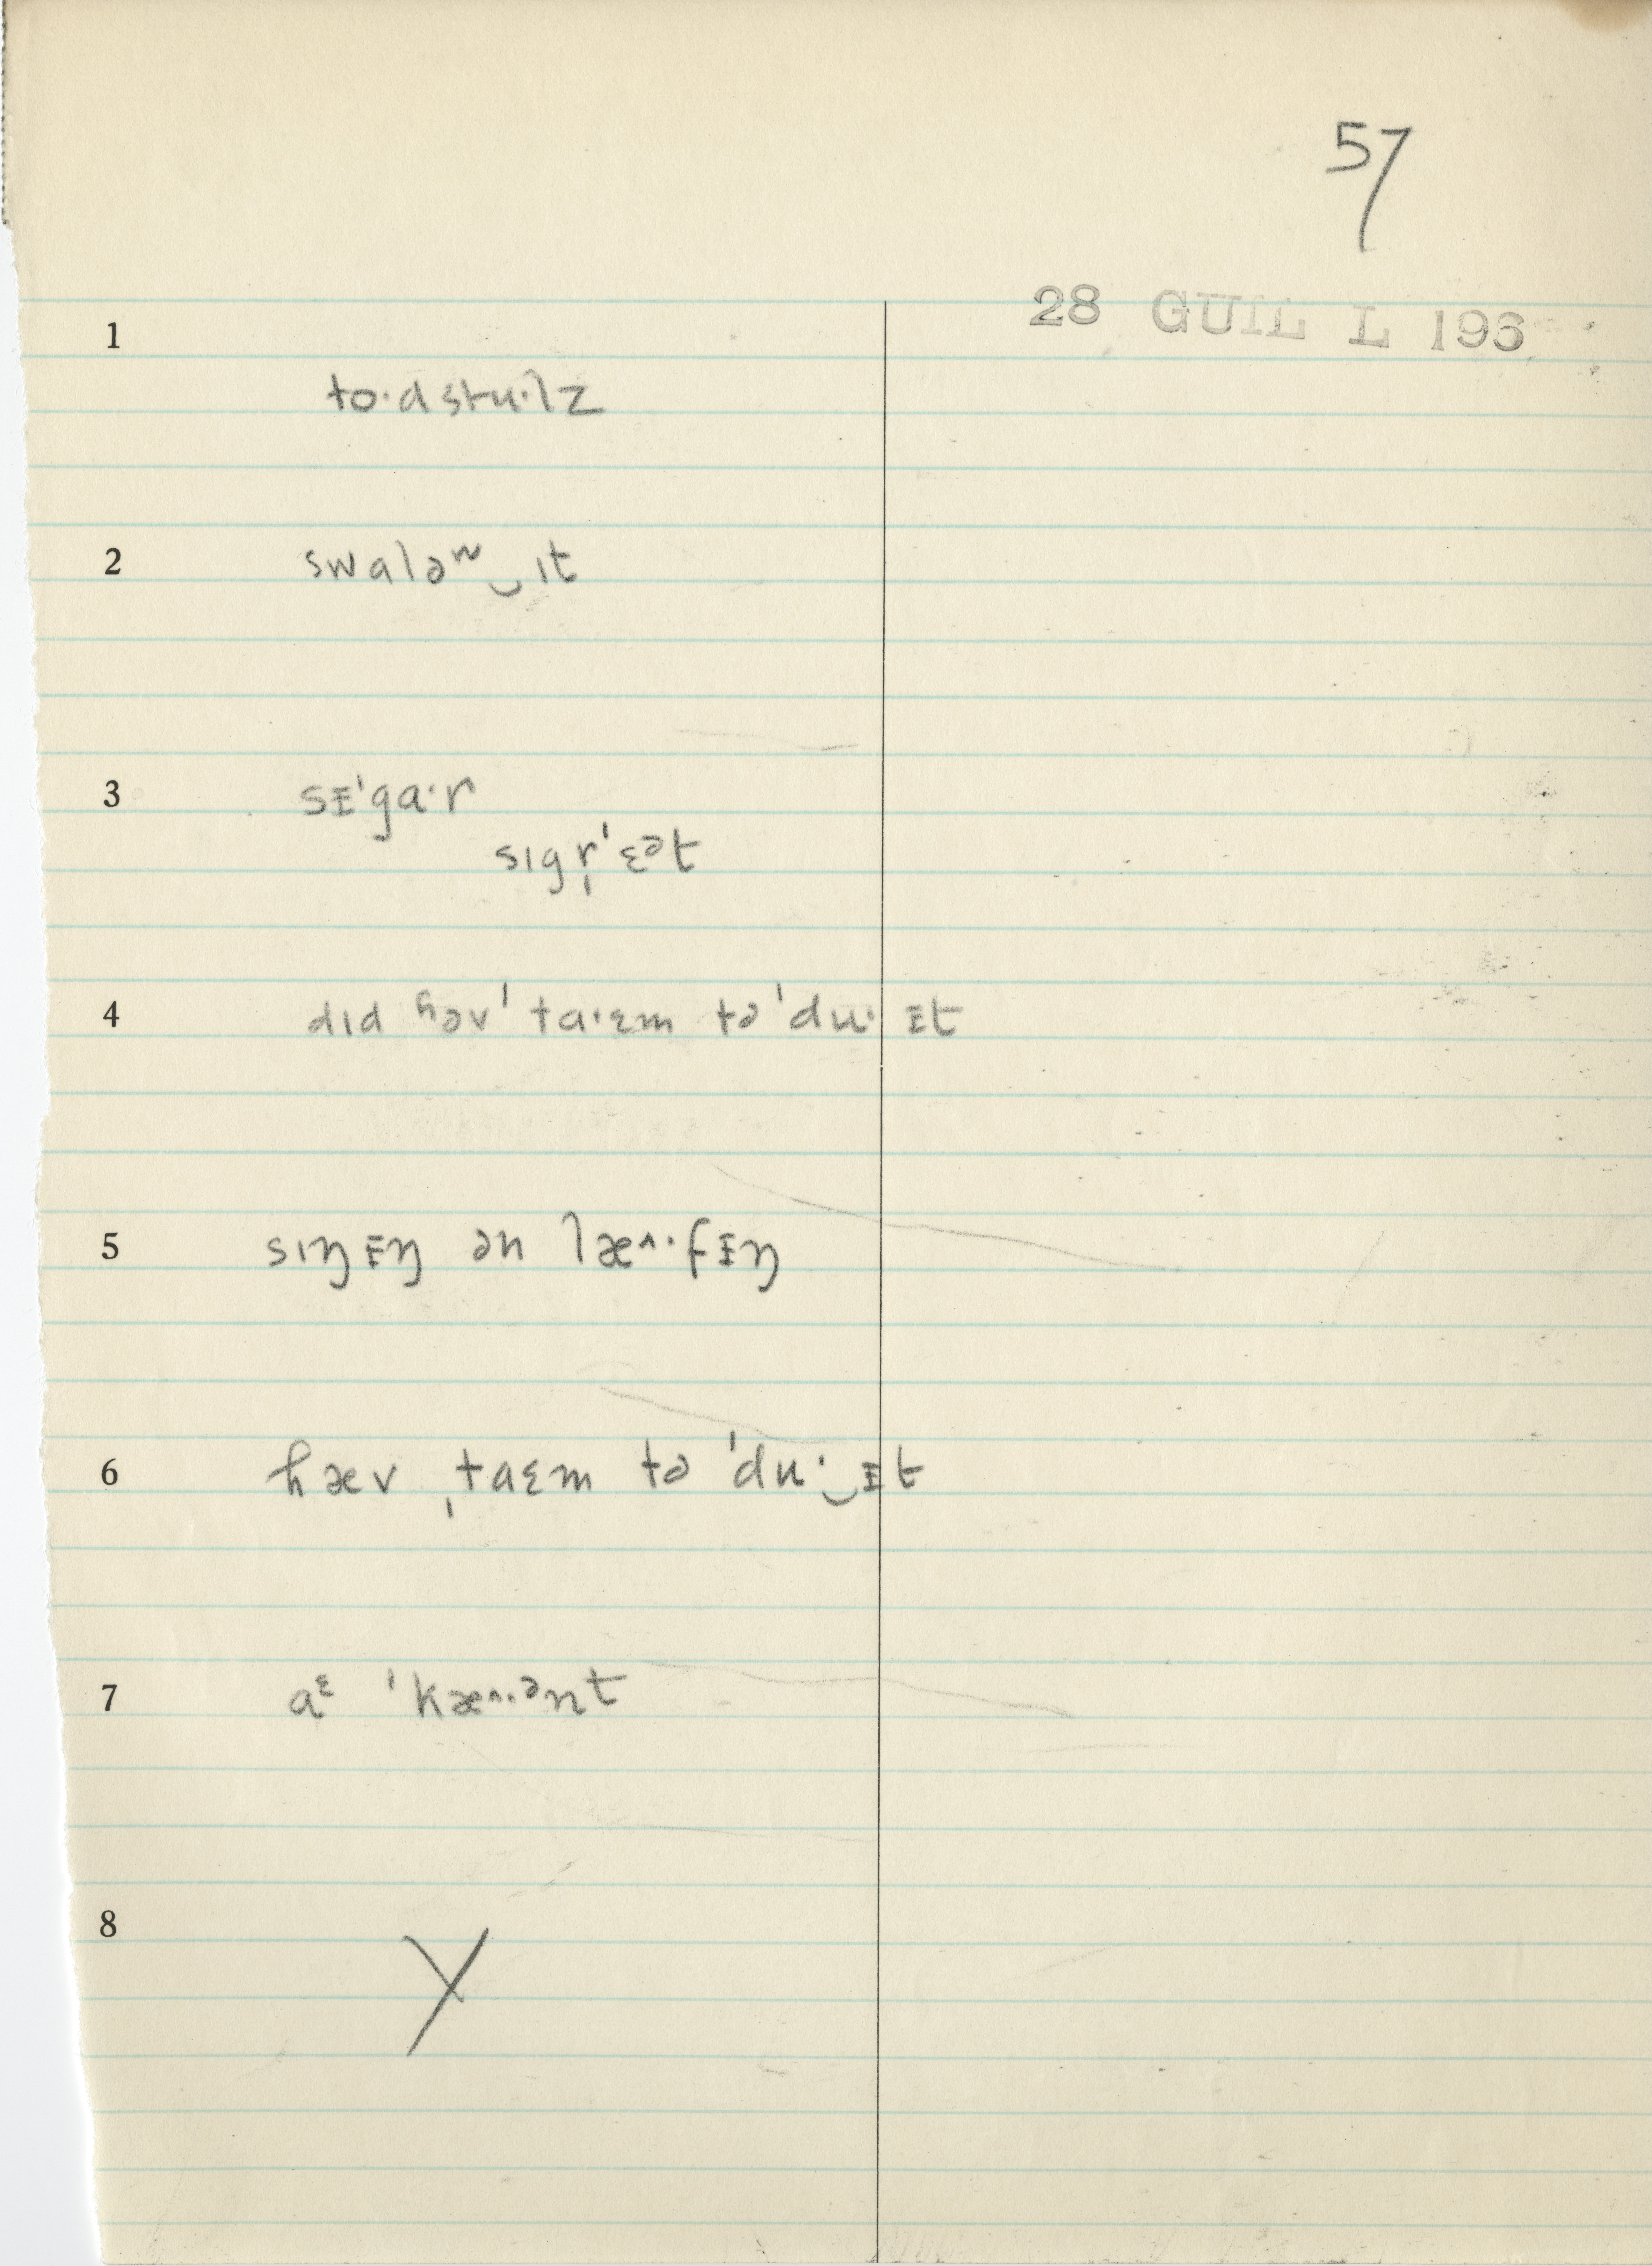 57
28 GUIL L 196
1
to·dstu·lz
2
swaləʷ‿ɪt
3
sᵻˈga·r
sɪgr̩ˈɛᵊt
4
dɪd ʱəvˈ ta·ɛm təˈdu· ᵻt
5
sɪŋᵻŋ ən læ^·fᵻŋ
6
hæv ˌtaɛm təˈdu·‿ᵻt
7
aᵋ ˈkæ^·ᵊnt
8
X